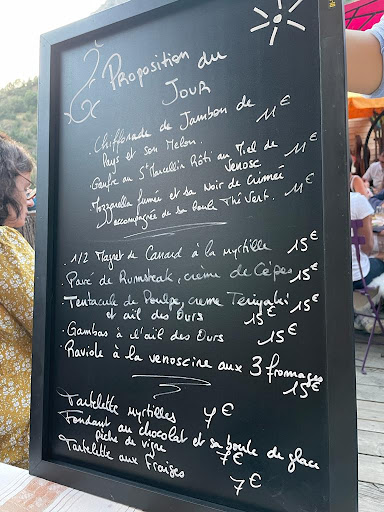 Proposition du
Jour
. Chiffonade de Jambon de
Pays et son Melon. 11€
. Gaufre au St Marcellin Rôti au Miel de
Venosc 11€
. Mozzarella fumée et sa Noir de Crimée
accompagnés de sa boule Thé Vert. 11€
. 1/2 Magret de Canard à la myrtille 15€
. Pavé de Rumsteak, crème de Cèpes 15€
. Tentacule de Poulpe, creme Teriyaki
et ail des Ours 15€
. Gambas à l'ail des Ours 15€
. Raviole à la venoscine aux 3 fromages
15€
. Tartelette myrtilles 7€
. Fondant au chocolat et sa boule de glace
pêche de vigne 7€
. Tartelette aux Fraises 7€